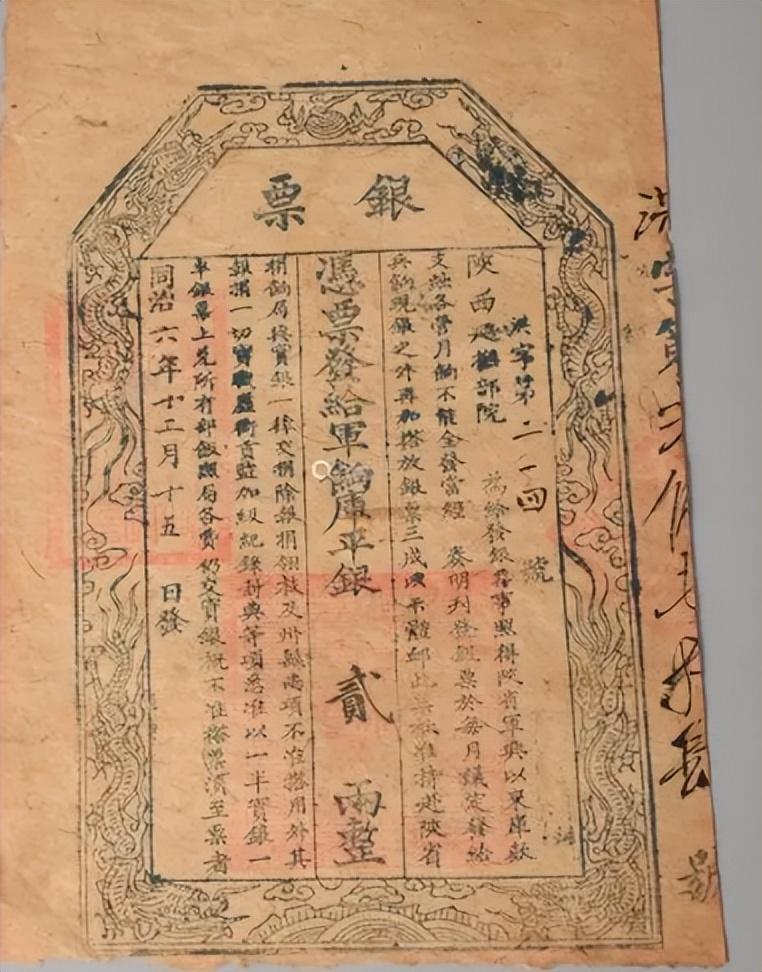 銀票
洪字第二一四號
陝西巡撫部院
為給發銀票事照得陝省軍興以來庫款
支絀各營月餉不能全發當經 奏明刊發銀票於每月議定發給
兵餉現銀之外再加搭放銀票三成以示體卹此票祇准持赴陝省
憑票發給軍餉庫平銀 貳 兩整
捐餉局按實銀一律交捐除報捐翎枝及州縣兩項不准搭用外其
報捐一切實職虛銜貢監加級紀錄封典等項悉准以一半實銀一
半銀票上兌所有部飯照局各費仍交實銀概不准搭票須至票者
同治六年十二月十五日發